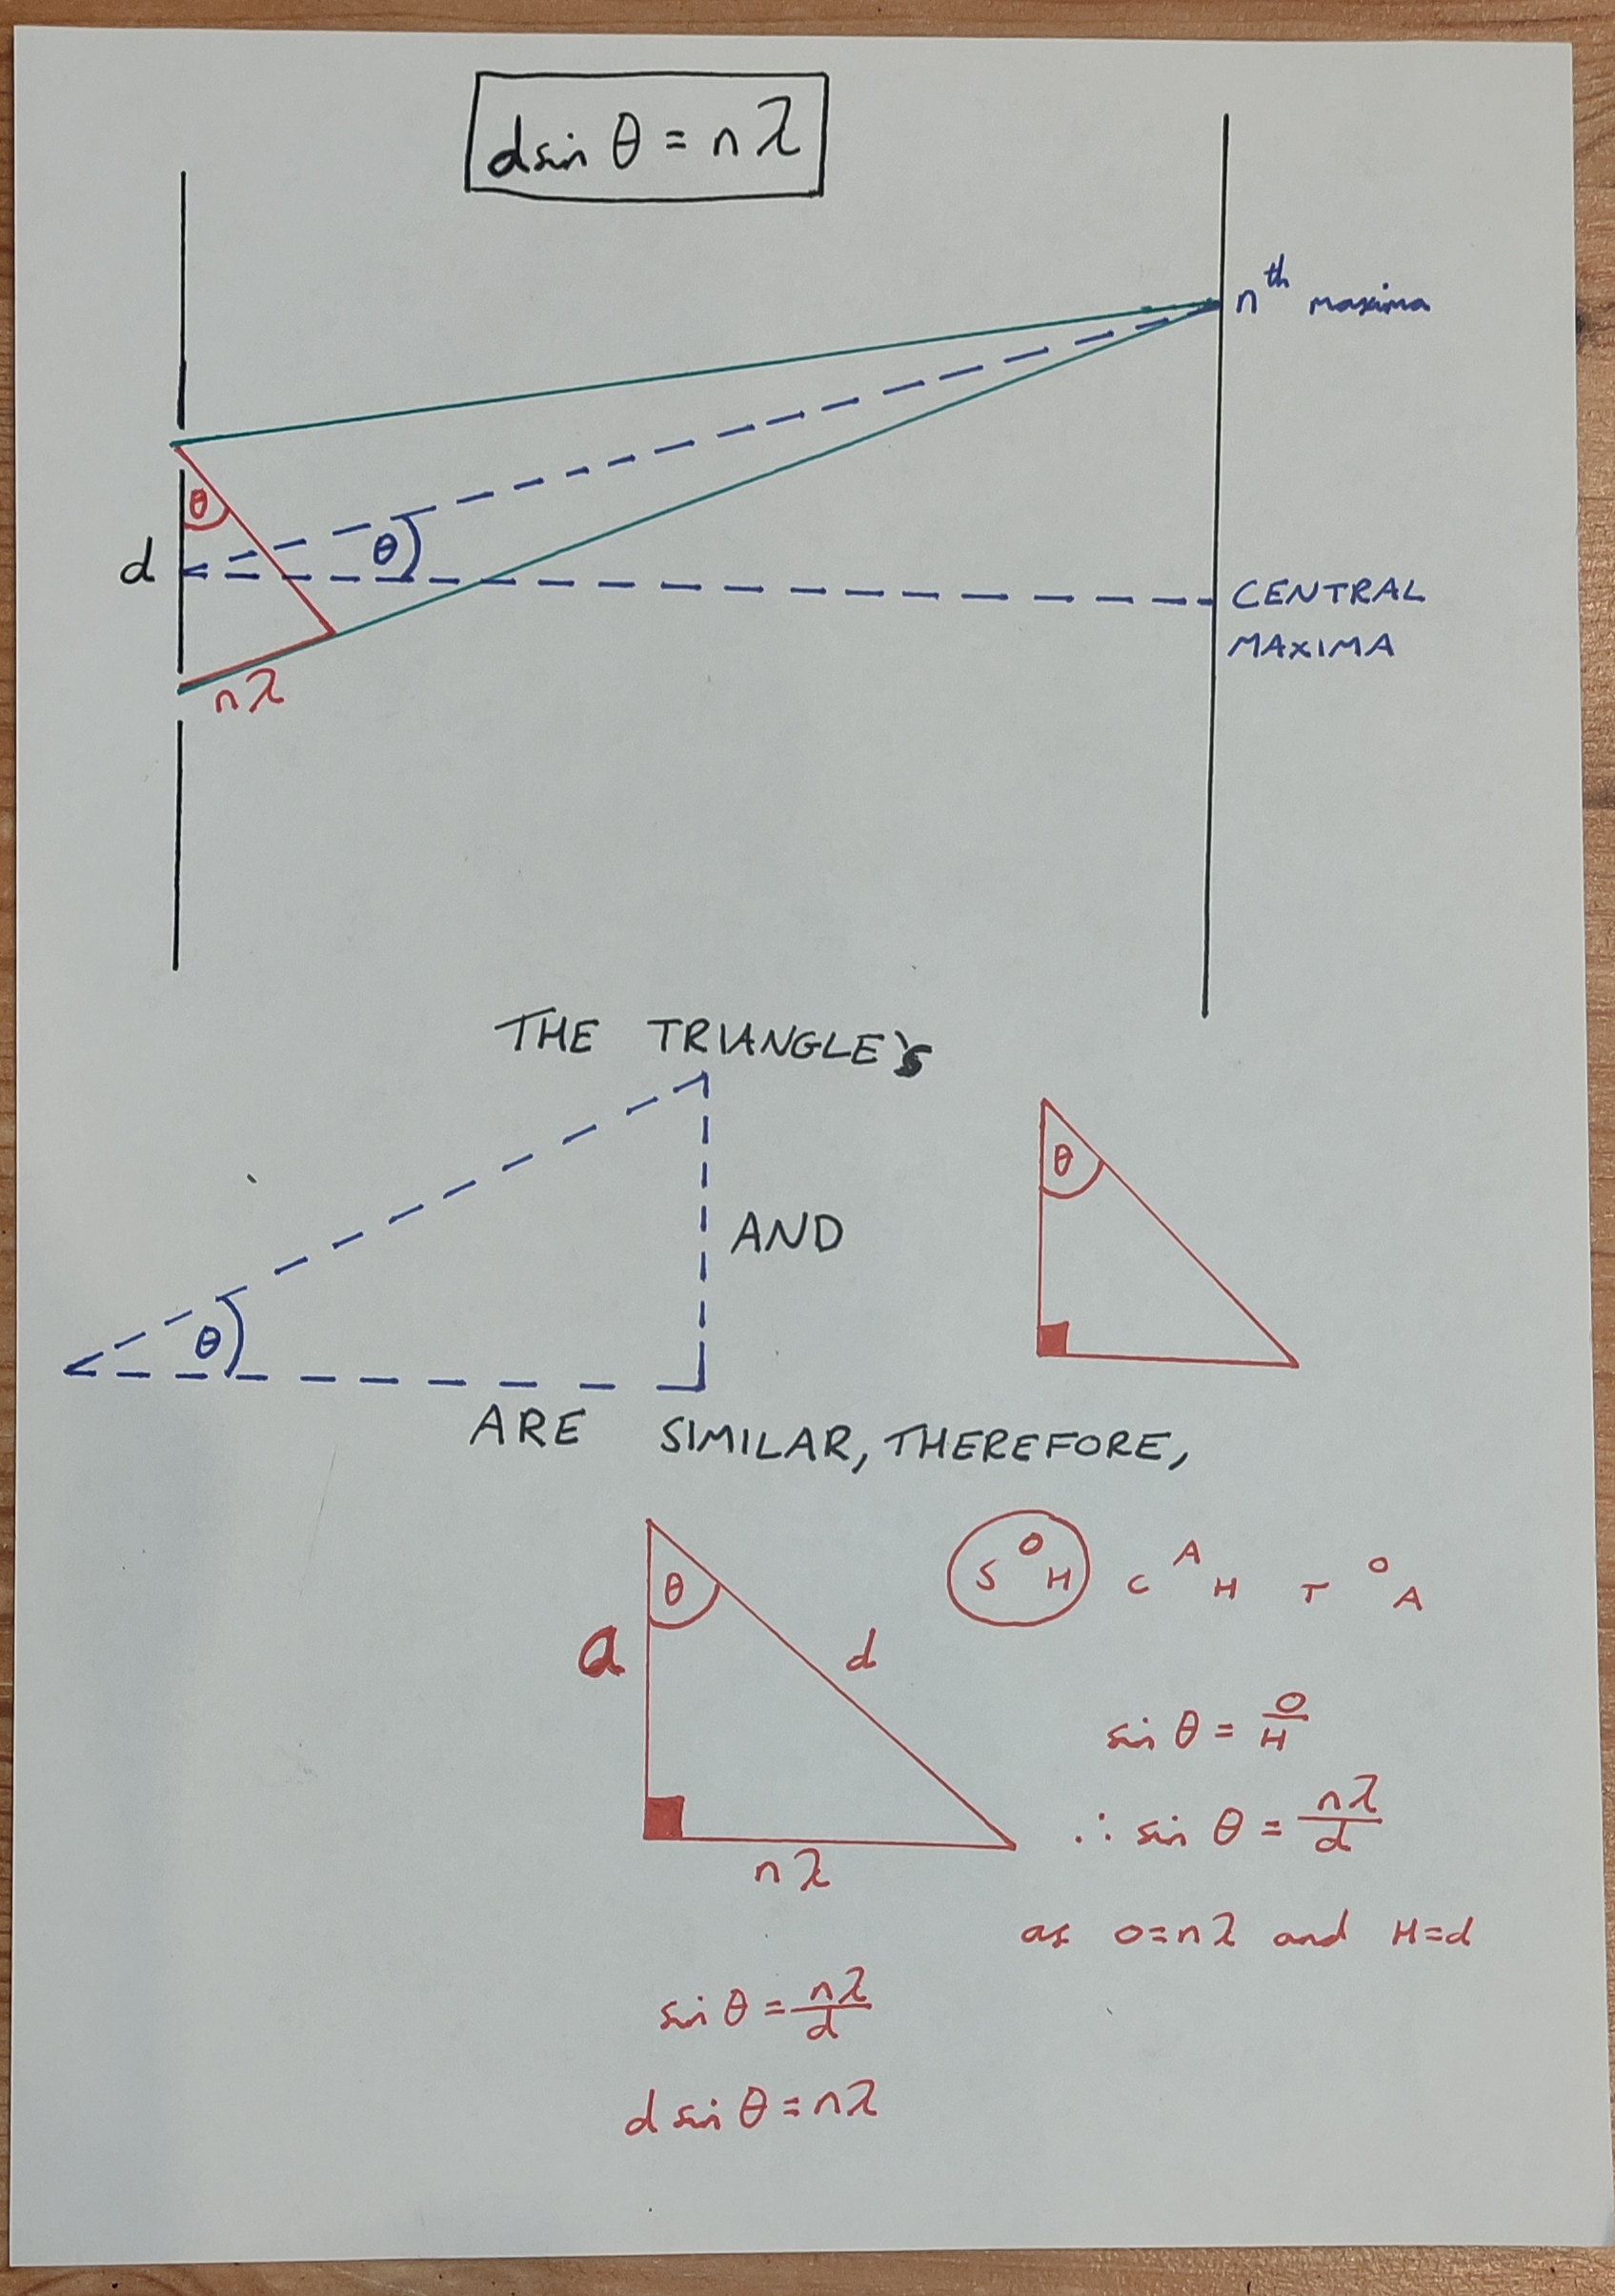 dsin θ = nλ
nᵗʰ maxima
θ
d
θ
CENTRAL
MAXIMA
nλ
THE TRIANGLE's
θ
AND
θ
ARE SIMILAR, THEREFORE,
S O H C A H T O A
θ
a
d
sin θ = O/H
∴ sin θ = nλ/d
nλ
as O=nλ and H=d
sin θ = nλ/d
d sin θ = nλ